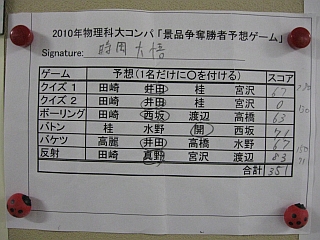 2010年物理科大コンパ「景品争奪勝者予想ゲーム」
Signature: 時田大悟
ゲーム 予想(1名だけに〇を付ける) スコア
クイズ 1 田崎 井田 桂 宮沢 67
クイズ 2 田崎 井田 桂 宮沢 0
ボーリング 田崎 西坂 渡辺 高橋 63
バトン 桂 水野 開 西坂 71
バケツ 高麗 井田 高橋 水野 67
反射 田崎 真野 宮沢 渡辺 83
合計 351